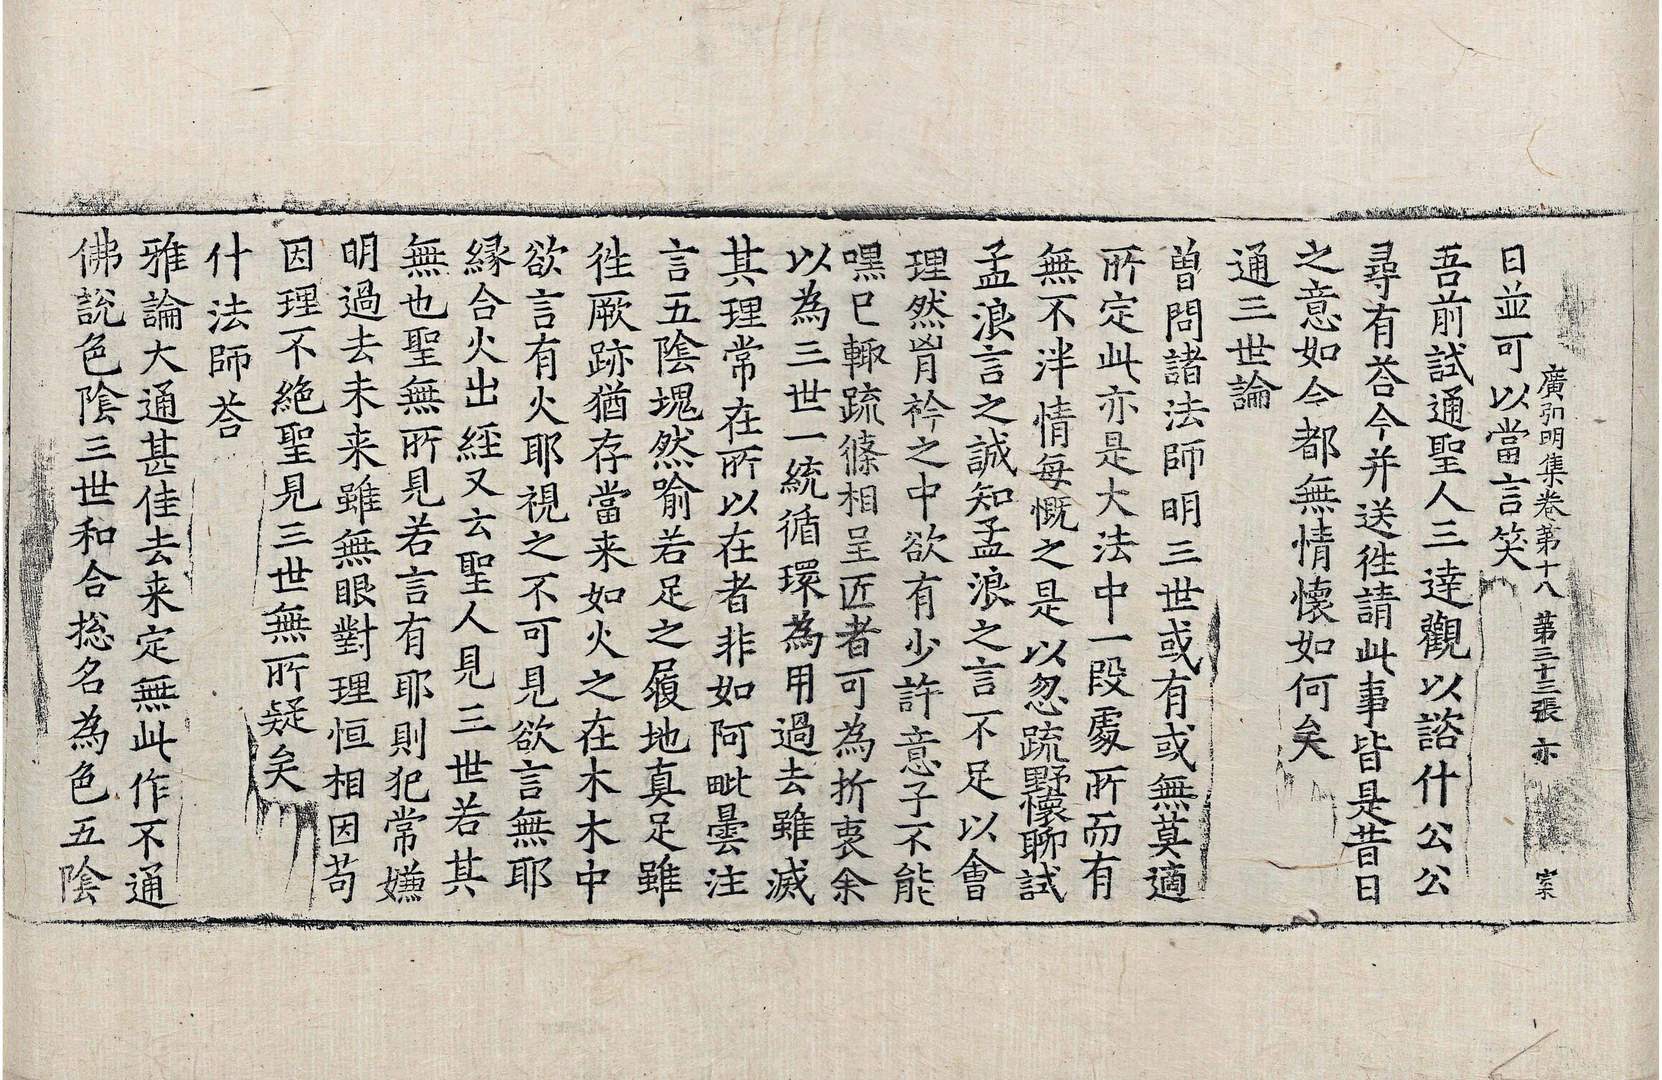 廣弘明集卷第十八 第三十三張 亦 宲
日並可以當言笑
吾前試通聖人三達觀以諮什公公
尋有荅今并送徃請此事皆是昔日
之意如今都無情懷如何矣
通三世論
曽問諸法師明三世或有或無莫適
所定此亦是大法中一段處所而有
無不泮情每慨之是以忽疏野懷聊試
孟浪言之誠知孟浪之言不足以會
理然胷衿之中欲有少許意子不能
嘿已輙疏條相呈匠者可為折衷余
以為三世一統循環為用過去雖滅
其理常在所以在者非如阿毗曇注
言五陰塊然喻若足之履地真足雖
徃厥跡猶存當来如火之在木木中
欲言有火耶視之不可見欲言無耶
縁合火出經又云聖人見三世若其
無也聖無所見若言有耶則犯常嫌
明過去未来雖無眼對理恒相因苟
因理不絶聖見三世無所疑矣
什法師荅
雅論大通甚佳去来定無此作不通
佛說色陰三世和合捴名為色五陰